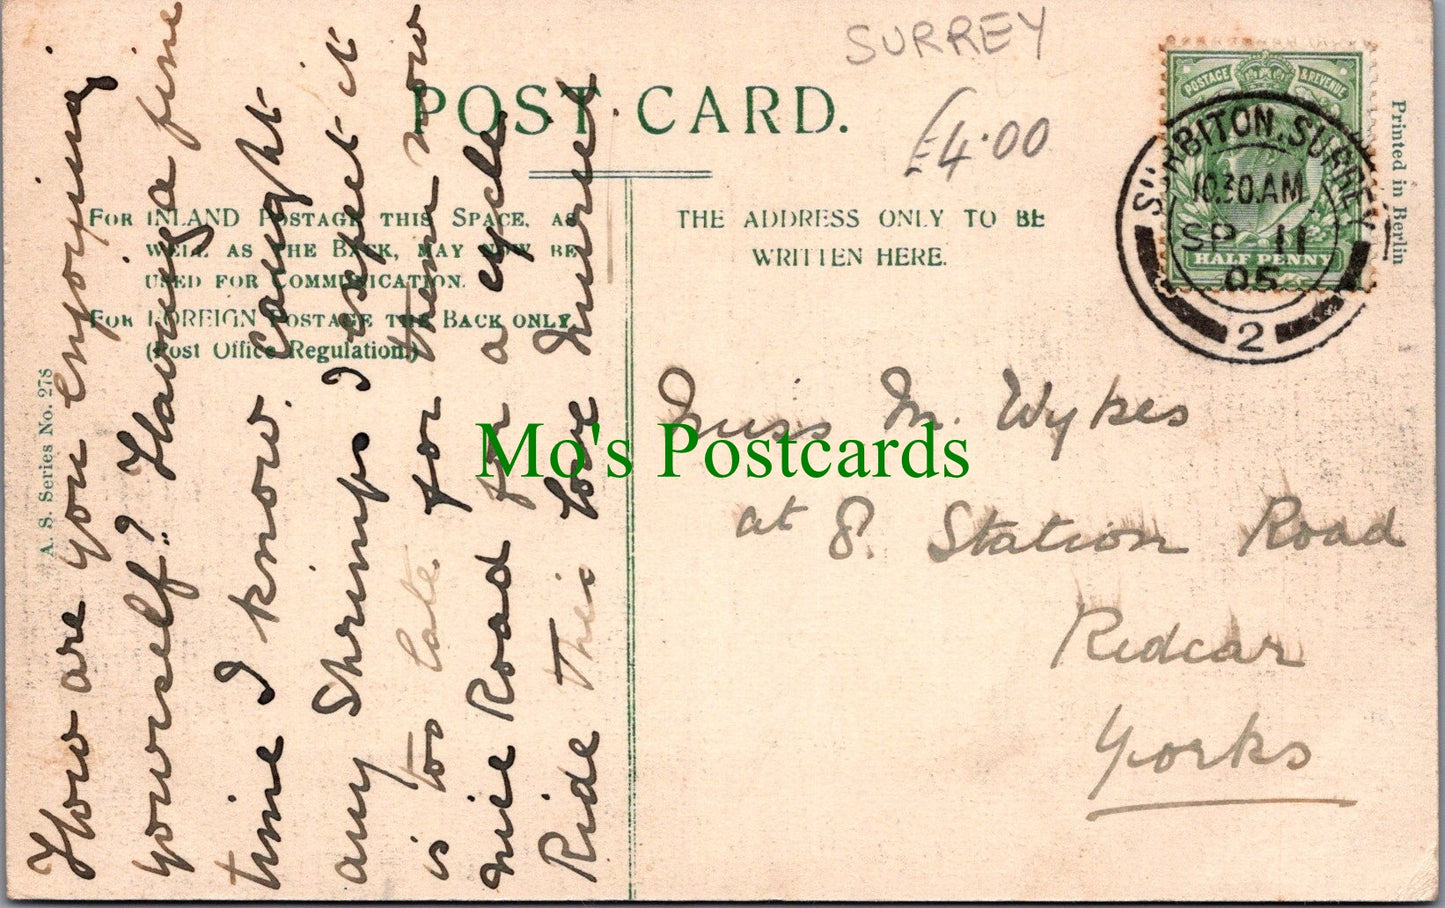 SURREY
£4.00
POST CARD.
FOR INLAND POSTAGE THIS SPACE, AS
WELL AS THE BACK, MAY NOW BE
USED FOR COMMUNICATION.
FOR FOREIGN POSTAGE THE BACK ONLY.
(Post Office Regulation.)
THE ADDRESS ONLY TO BE
WRITTEN HERE.
POSTAGE & REVENUE
HALF PENNY
SURBITON. SURREY
10.30.AM
SP 11
05
2
Printed in Berlin
A. S. Series No. 278
How are you enjoying
yourself? Having a fine
time I know. Caught
any Shrimps I expect it
is too late for them now
nice Road for a cycle
Ride this love Muriel
Miss M. Wykes
at 8. Station Road
Redcar
Yorks
Mo's Postcards